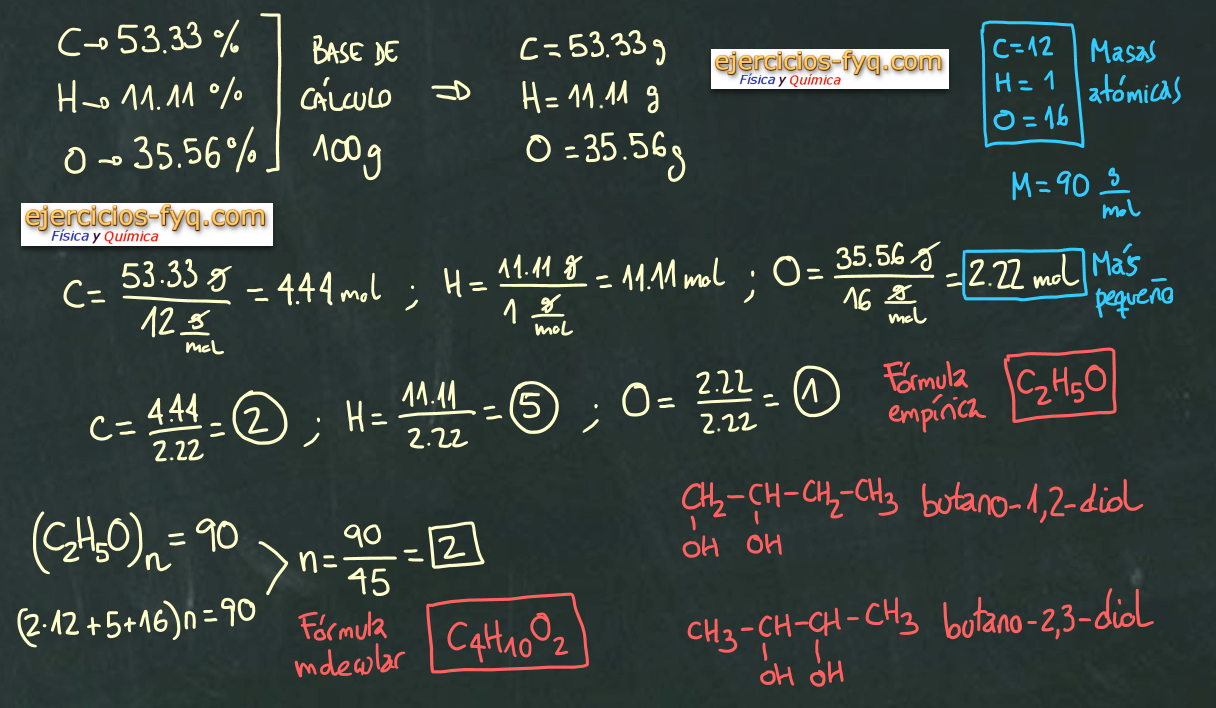 C → 53.33 %
H → 11.11 %
O → 35.56 %
BASE DE
CÁLCULO
100g
⇒
C = 53.33 g
H = 11.11 g
O = 35.56 g
ejercicios-fyq.com
Física y Química
C = 12
H = 1
O = 16
Masas
atómicas
M = 90 g/mol
ejercicios-fyq.com
Física y Química
C = 53.33 g / 12 g/mol = 4.44 mol ; H = 11.11 g / 1 g/mol = 11.11 mol ; O = 35.56 g / 16 g/mol = 2.22 mol
Más
pequeño
C = 4.44/2.22 = 2 ; H = 11.11/2.22 = 5 ; O = 2.22/2.22 = 1
Fórmula
empírica
C₂H₅O
(C₂H₅O)n = 90
(2·12 + 5 + 16) n = 90
n = 90/45 = 2
Fórmula
molecular
C₄H₁₀O₂
CH₂-CH-CH₂-CH₃ butano-1,2-diol
OH OH
CH₃-CH-CH-CH₃ butano-2,3-diol
OH OH